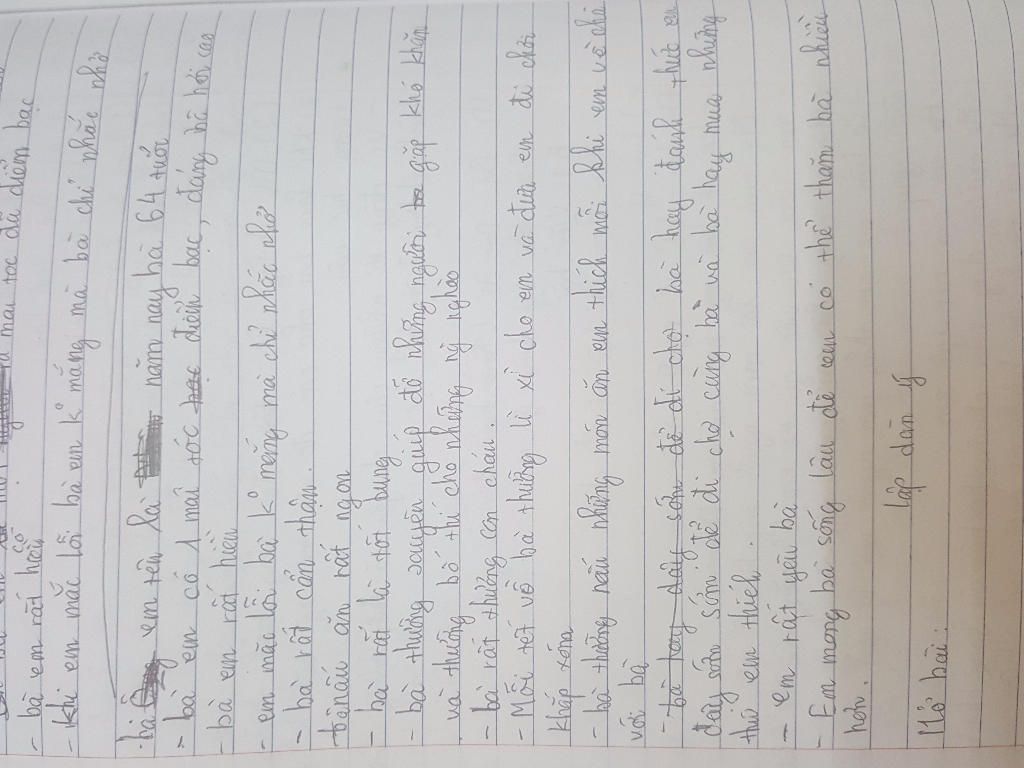 mái tóc đã điểm bạc
- bà em rất hay có
- Khi em mắc lỗi bà em k° mắng mà bà chỉ nhắc nhở
bà em tên là năm nay bà 64 tuổi
- bà em có 1 mái tóc điểm bạc, dáng bà hơi cao
- bà em rất hiền
em mắc lỗi bà k° mắng mà chỉ nhắc nhở
- bà rất cẩn thận.
bà nấu ăn rất ngon
- bà rất là tốt bụng
- bà thường xuyên giúp đỡ những người gặp khó khăn
và thường bố thí cho những ng nghèo
- bà rất thương con cháu.
- Mỗi tết về bà thường lì xì cho em và đưa em đi chơi
khắp xóm
- bà thường nấu những món ăn em thích mỗi khi em về chơi
với bà
- bà hay dậy sớm để đi chợ bà hay đánh thức em
dậy sớm để đi chợ cùng bà và bà hay mua những
thứ em thích.
- em rất yêu bà
- Em mong bà sống lâu để em có thể thăm bà nhiều
hơn.
lập dàn ý
Mở bài: